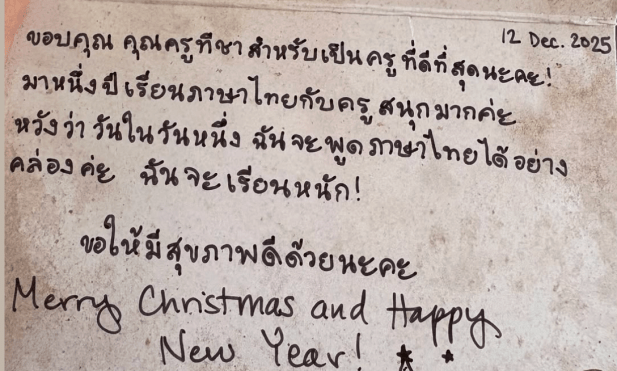 12 Dec. 2025
ขอบคุณ คุณครูทีชา สำหรับเป็นครูที่ดีที่สุดนะคะ!
มาหนึ่งปีเรียนภาษาไทยกับครู สนุกมากค่ะ
หวังว่า วันในวันหนึ่ง ฉันจะพูดภาษาไทยได้อย่าง
คล่องค่ะ ฉันจะเรียนหนัก!
ขอให้มีสุขภาพดีด้วยนะคะ
Merry Christmas and Happy
New Year!